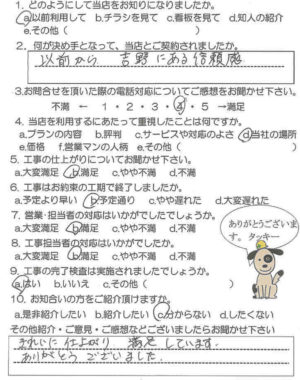 1. どのようにして当店をお知りになりましたか。
a.以前利用して b.チラシを見て c.看板を見て d.知人の紹介
e.その他 (　　　　　)
2. 何が決め手となって、当店とご契約されましたか。
以前から 吉野にある信頼感
3.お問合せを頂いた際の電話対応についてご感想をお聞かせ下さい。
不満 ← 1・2・3・4・5 →満足
4. 当店を利用するにあたって重視したことは何ですか。
a.プランの内容 b.評判 c.サービスや対応のよさ d.当社の場所
e.価格 f.営業マンの人柄 e.その他 (　　　　　)
5. 工事の仕上がりについてお聞かせ下さい。
a.大変満足 b.満足 c.やや不満 d.不満
6. 工事はお約束の工期で終了しましたか。
a.予定より早い b.予定通り c.やや遅れた d.大変遅れた
7. 営業・担当者の対応はいかがでしたでしょうか。
a.大変満足 b.満足 c.やや不満 d.不満
8. 工事担当者の対応はいかがでしたか。
a.大変満足 b.満足 c.やや不満 d.不満
ありがとうございま
す。タッキー
9. 工事の完了検査は実施されましたでしょうか。
a.はい b.いいえ c.その他 (　　　　　)
10. お知合いの方をご紹介頂けますか。
a.是非紹介したい b.紹介したい c.分からない d.したくない
その他紹介・ご意見・ご感想などございましたらお聞かせ下さい
きれいに仕上がり 満足しています.
ありがとう ございました.